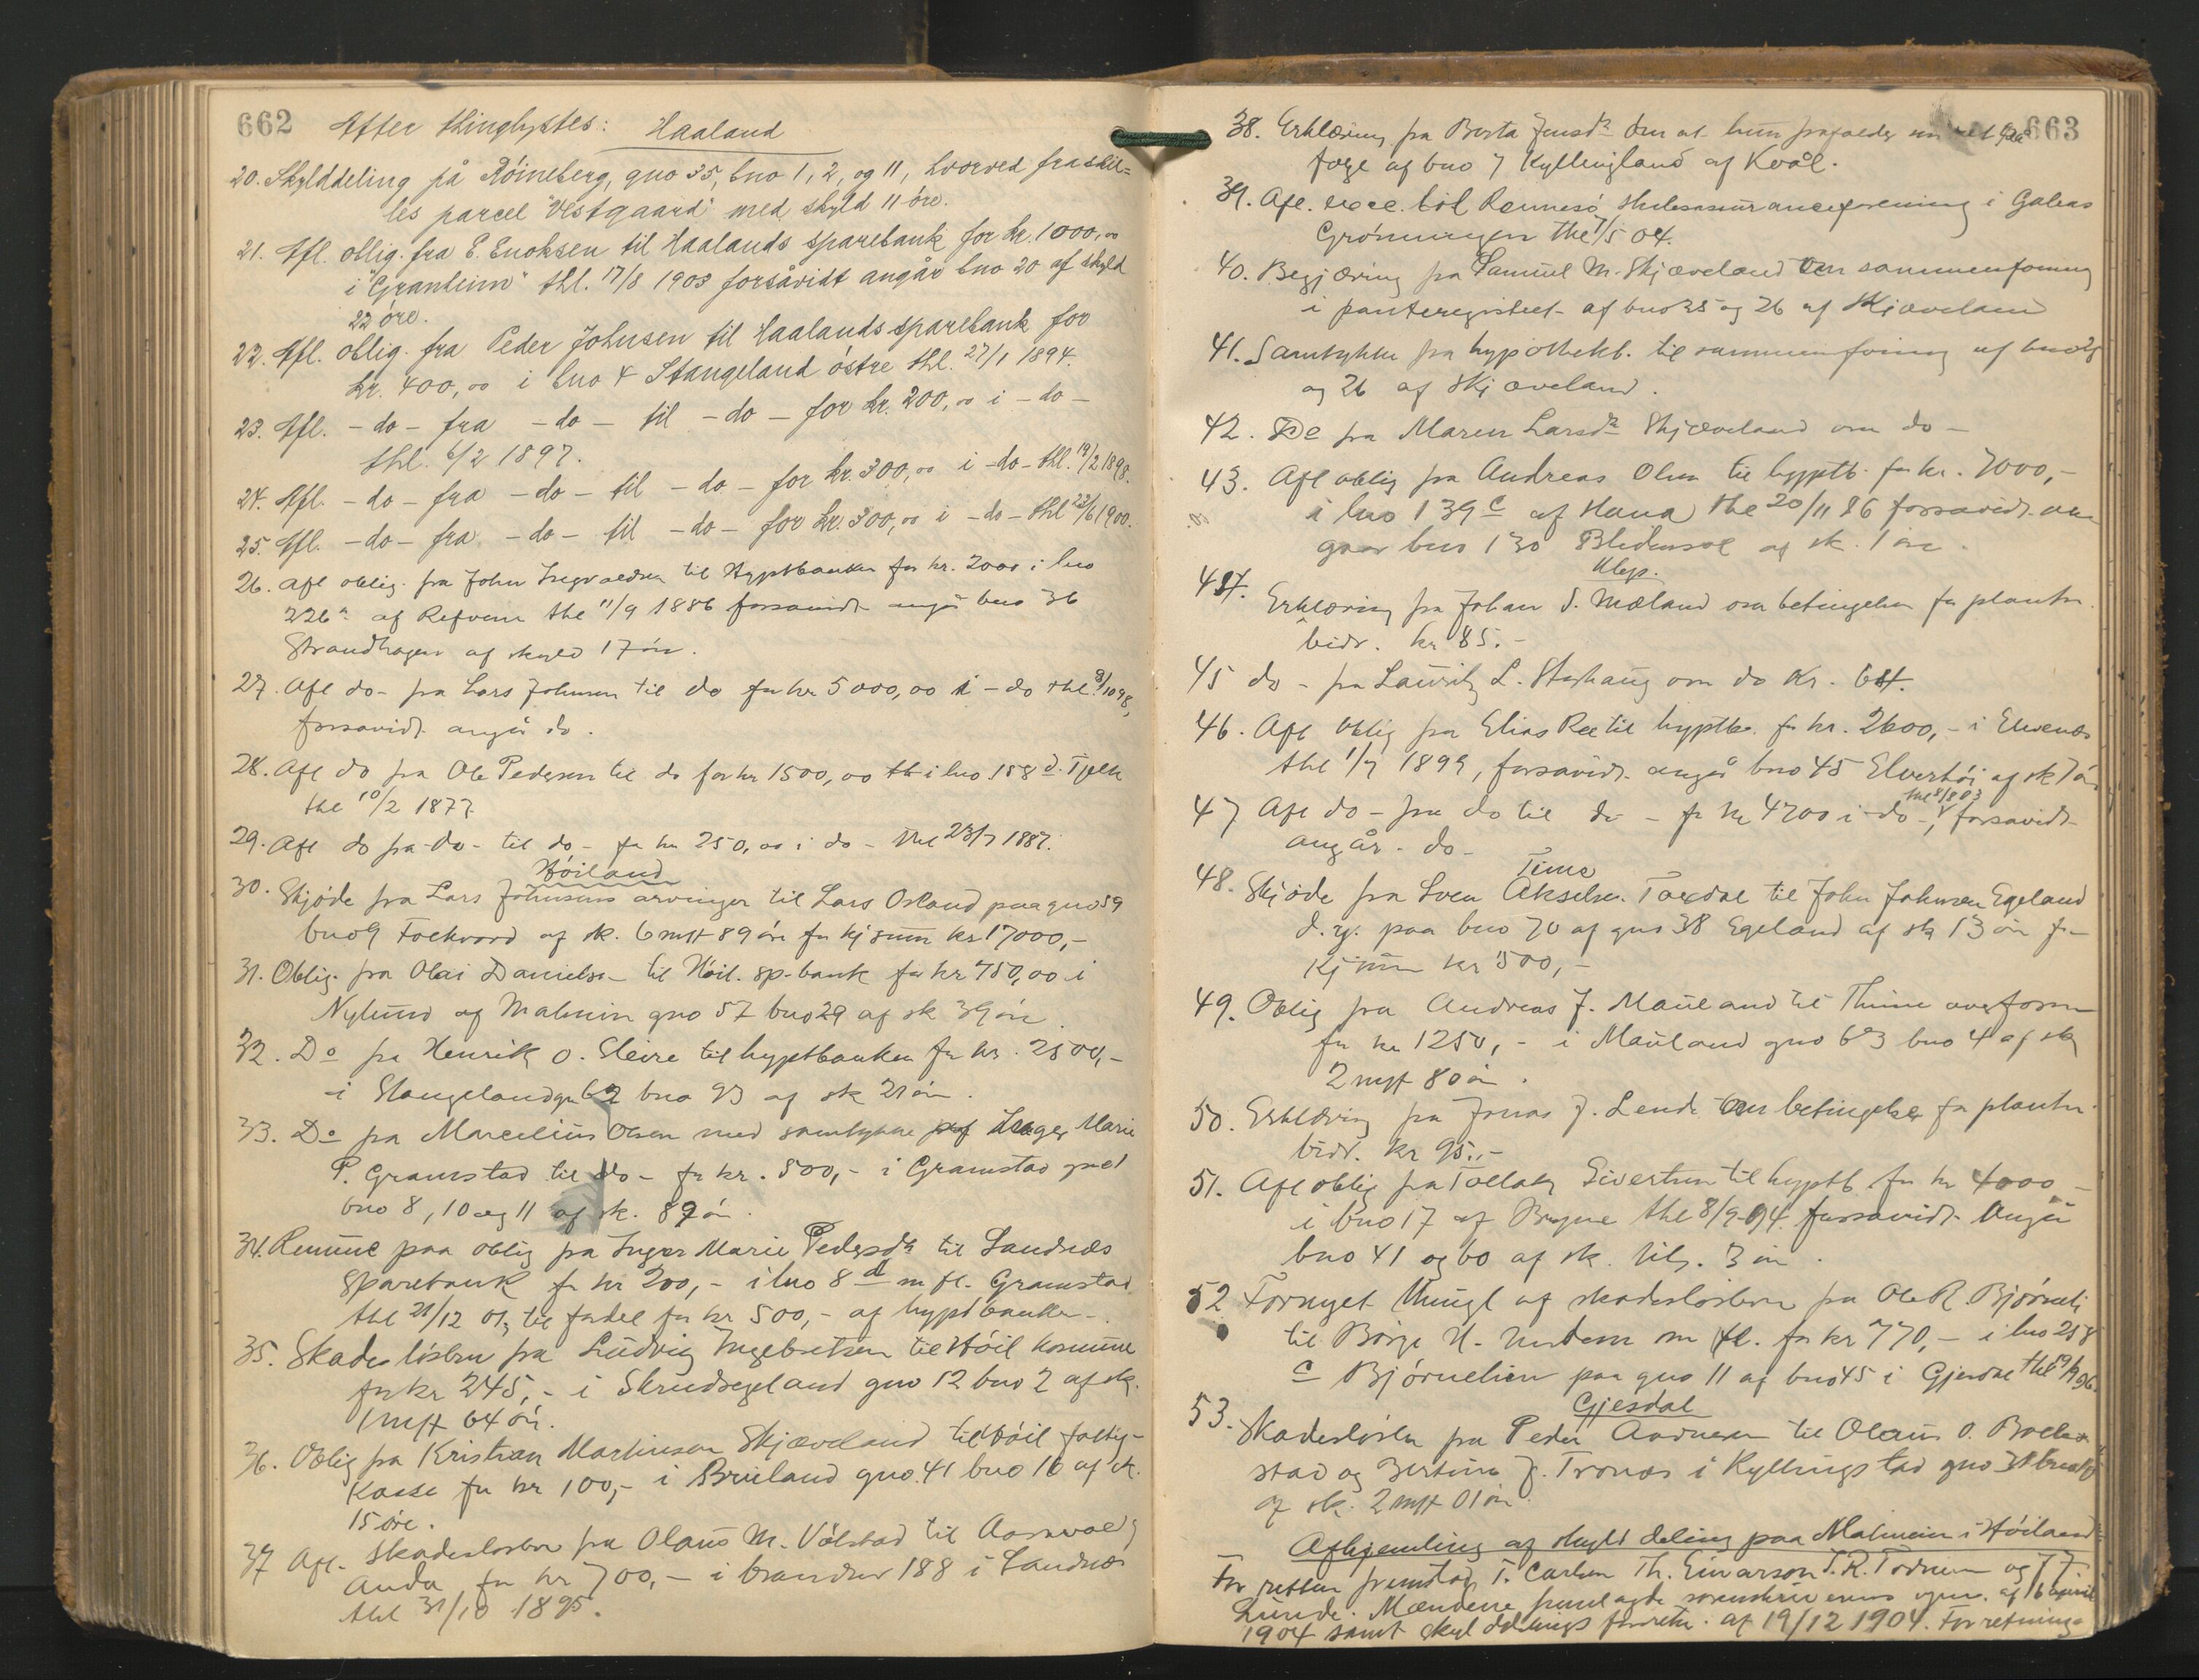 662 Efter thinglystes: Haaland
20. Skylddeling på Röineberg, gno 35, bno 1, 2, og 11, hvorved fraskil=
les parcel "Vestgaard" med skyld 11 öre.
21. Afl. oblig. fra E. Enoksen til Haalands sparebank for kr. 1000,00
i "Granheim" thl. 17/8 1903 forsåvidt angår bno 20 af skyld
22 öre.
22. Afl. oblig. fra Peder Johnsen til Haalands sparebank for
kr. 400,00 i bno 4 Stangeland östre thl. 27/1 1894.
23. Afl. - do - fra - do - til - do - for kr. 200,00 i - do -
thl. 6/2 1897.
24. Afl. - do - fra - do - til - do - for kr. 300,00 i - do - thl. 19/2 1898.
25. Afl. - do - fra - do - til - do - for kr. 300,00 i - do - thl 23/6 1900.
26. Afl oblig. fra John Ingvaldsen til Hyptbanken for kr. 2000 i bno
226a af Refvem thl 11/9 1886 forsavidt angår bno 36
Strandhagen af skyld 17 öre.
27. Afl do - fra Lars Johnsen til do for kr 5000,00 i - do thl. 8/10 98,
forsavidt angår do.
28. Afl do fra Ole Pedersen til do for kr 1500,00 i bno 158 d. Tjelte
thl 10/2 1877.
29. Afl do fra - do - til do - for kr 250,00 i do - thl 23/7 1887.
Höiland
30. Skjöde fra Lars Johnsens arvinger til Lars Osland paa gno 59
bno 9 Folkvord af sk. 6 mk 89 öre for kjsum kr 17000,-
31. Oblig. fra Olai Danielsen til Höil. sp.bank for kr 750,00 i
Nylund af Malmin gno 57 bno 29 af sk 39 öre.
32. Do fra Henrik O. Sleire til hyptbanken for kr. 2500,-
i Stangeland gno 62 bno 93 af sk 21 öre.
33. Do fra Marcelius Olsen med samtykke af Inger Marie
P. Gramstad til do - for kr. 500,- i Gramstad gno 1
bno 8, 10 og 11 af sk. 89 öre.
34. Renunc paa oblig fra Inger Marie Pedersdtr til Sandnæs
Sparebank for kr 200,- i bno 8 d m fl. Gramstad
thl 21/12 01, til fordel for kr 500,- af hyptbanken.
35. Skadeslösbrev fra Ludvig Ingebretsen til Höil kommune
for kr 245,- i Skrudsegeland gno 12 bno 2 af sk.
1 mk 64 öre.
36. Oblig fra Kristian Martinsen Skjæveland til Höil fattig-
kasse for kr 100,- i Brueland gno. 41 bno 16 af sk.
15 öre.
37 Afl. Skadeslösbrev fra Olaus M. Völstad til Aanevald
Auda for kr 700,- i brandno 188 i Sandnæs
thl 31/10 1895.
663
38. Erklæring fra Berta Jensdtr om at hun frafalder sin ret
föge af bno 7 Kyllingland af Kvål.
39. Afl. til Rennesö Skibsassuranceforening i Galeas
Gröningen thl 7/5 04.
40. Begjæring fra Samuel M. Skjæveland om sammenföining
i panteregistret af bno 25 og 26 af Skjæveland
41. Samtykke fra hypothekb. til sammenföining af bno 25
og 26 af Skjæveland.
42. Do fra Maren Larsdtr Skjæveland om do -
43. Afl oblig fra Andreas Olsen til hyptb. for kr. 7000,-
i bno 139 c af Hana thl 20/11 86 forsavidt an-
gaar bno 130 af sk. 1 öre.
Klep.
44. Erklæring fra Johan S. Mæland om betingelser for plantn.
bidr. kr 85.-
45 do - fra Lauritz L. Storhaug om do kr. 64.
46. Afl oblig fra Elias Ree til hyptbk. for kr. 2600,- i Elvenæs
thl 1/7 1899, forsavidt angår bno 45 Elverhöi af sk 7 öre
47 Afl do - fra do til do - for kr 4700 i - do -, thl 8/8 03 forsavidt
angår - do -
Time
48. Skjöde fra Sven Akselsen Taxdal til John Johnsen Egeland
d. y. paa bno 70 af gno 38 Egeland af sk 13 öre for
kjsum kr 500,-
49. Oblig fra Andreas J. Mauland til Thime overform.
for kr 1250,- i Mauland gno 63 bno 4 af sk
2 mk 80 öre.
50. Erklæring fra Jonas J. Lende om betingelser for plantn.
bidr. kr 95.-
51. Afl oblig fra Tollak Sivertsen til hyptb for kr 4000,-
i bno 17 af Bryne thl 8/9 94. forsavidt angår
bno 41 og 60 af sk. tils. 3 öre.
52 Fornyet thingl af skadeslösbrev fra Ole R. Björneli
til Börge N. Undem m fl. for kr 770,- i bno 258
c Björnelien paa gno 11 af bno 45 i Gjerdal
Gjesdal
53. Skadeslösbr fra Peder Aadnesen til Olaus O. Bollestad
stad og Bertine J. Tronæs i Kyllingstad gno 31
af sk. 2 mk 01 öre.
Afhjemling af skylddeling paa Malmein i Höiland
For retten fremstod T. Carlsen Th. Einarson T. R. Todnem og T. J.
Lunde. Mændene fremlagde sorenskriverens opn. af 16 april
1904 samt skylddelings forretn. af 19/12 1904. Forretnings-